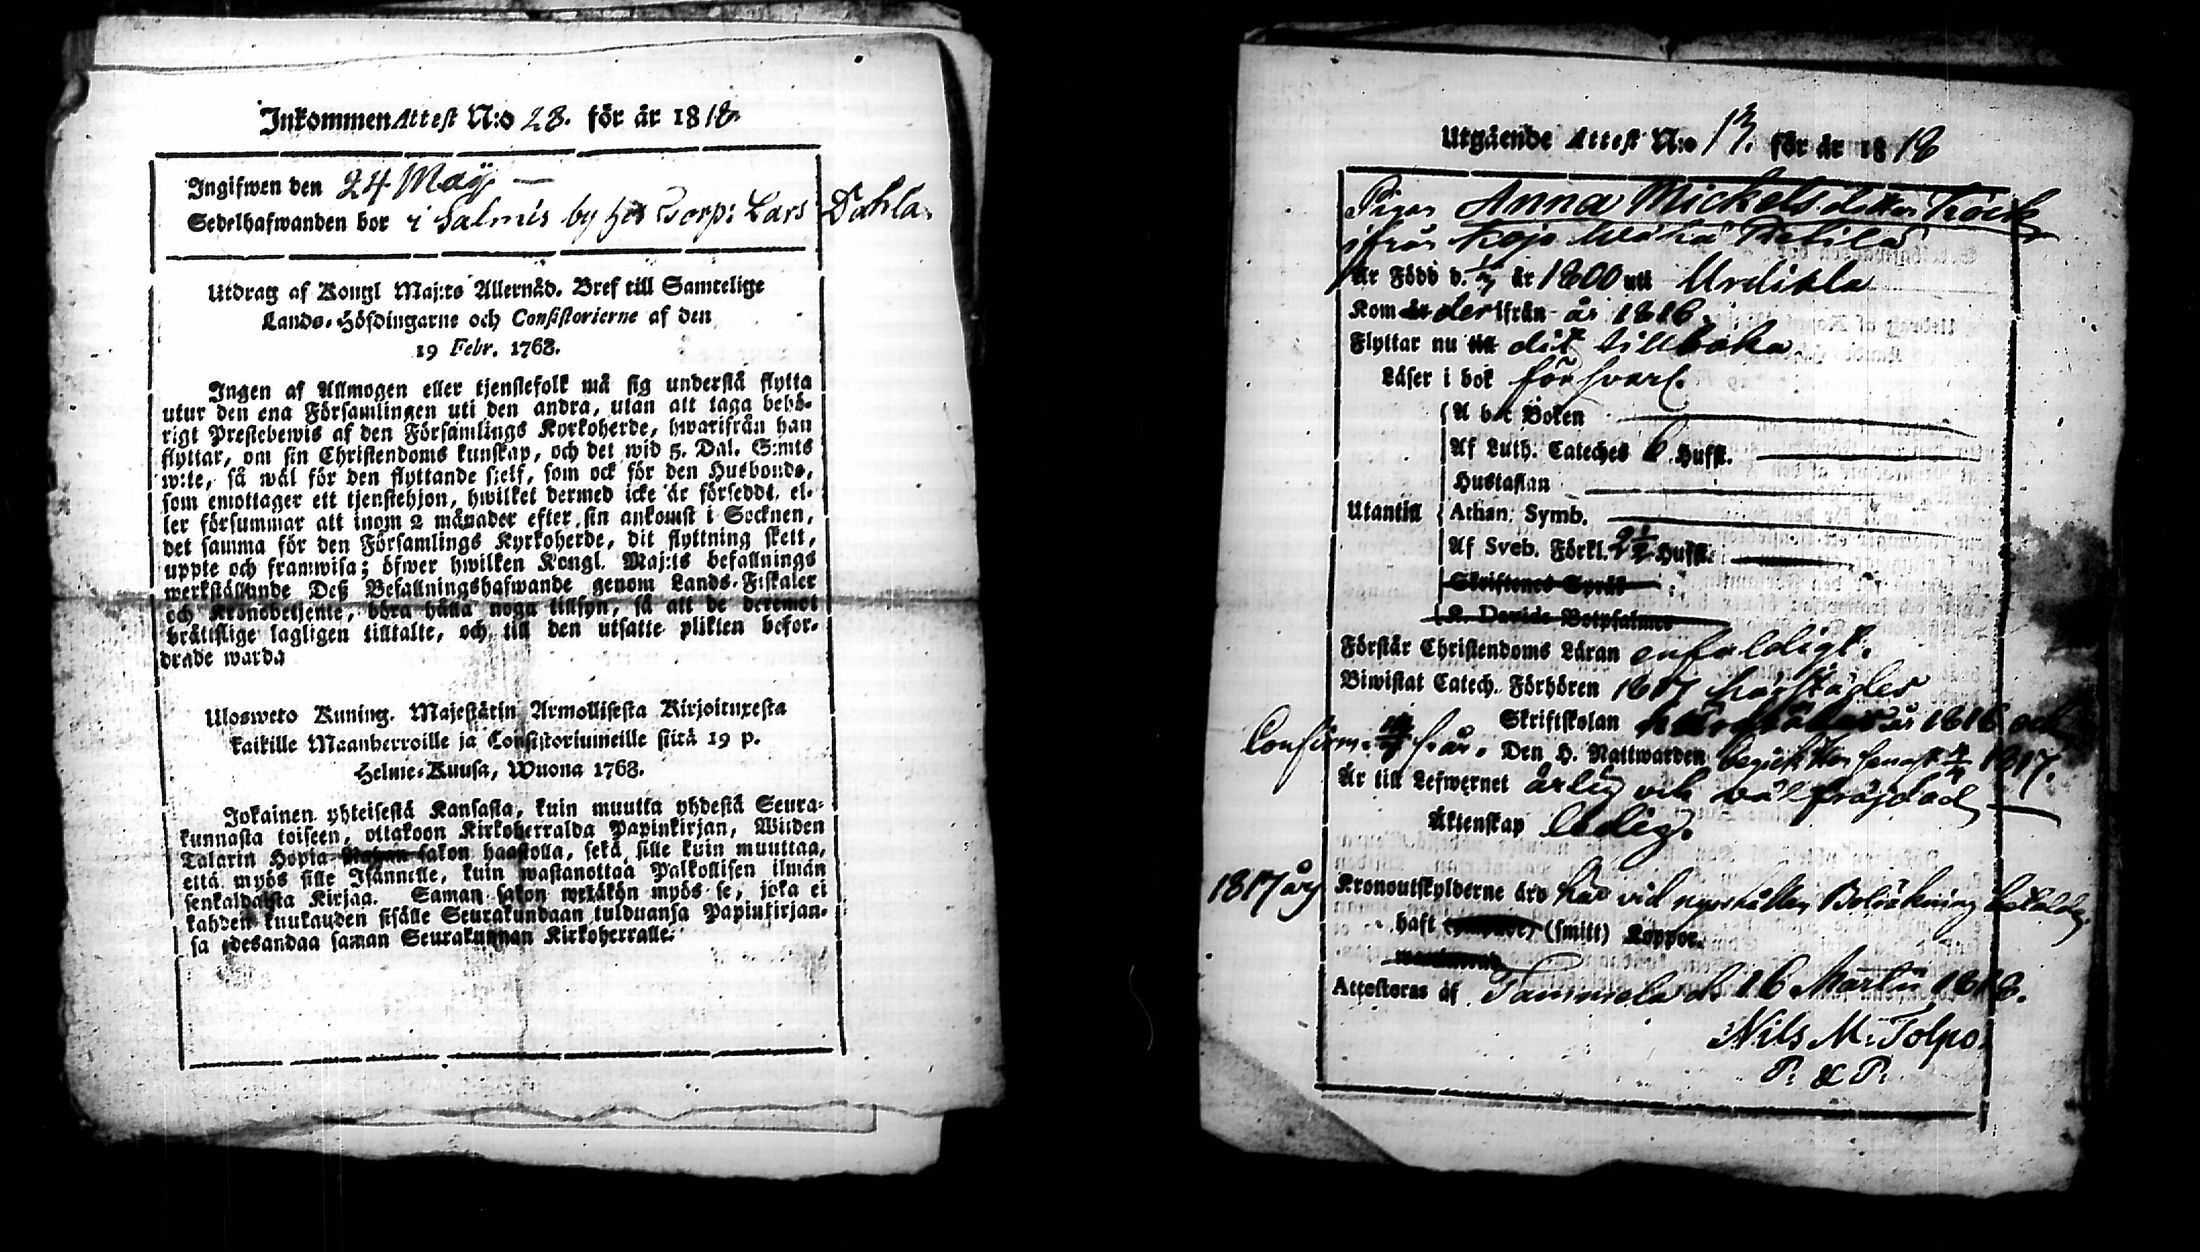 Inkommen Attest N:o 28. för år 1818
Ingifwen den 24 Maÿ —
Sedelhafwanden bor i Salmis by hos Corp: Lars Dahla.
Utdrag af Kongl Maj:ts Allernåd. Bref till Samtelige
Lands-Höfdingarne och Consistorierne af den
19 Febr. 1768.
Ingen af Allmogen eller tjenstefolk må sig understå flytta
utur den ena Församlingen uti den andra, utan att taga behö-
rigt Prestebewis af den Församlings Kyrkoherde, hwarifrån han
flyttar, om sin Christendoms kunskap, och det wid 5. Dal. S:mts
wite, så wäl för den flyttande sielf, som ock för den Husbonde,
som emottager ett tjenstehjon, hwilket dermed icke är försedt, el-
ler försummar att inom 2 månader efter sin ankomst i Socknen,
det samma för den Församlings Kyrkoherde, dit flyttning skett,
uppte och framwisa; öfwer hwilken Kongl. Maj:ts befallnings
werkställande Deß Befallningshafwande genom Lands-Fiskaler
och Kronobetjente, böra hålla noga tillsyn, så att de deremot
bråttslige lagligen tilltalte, och till den utsatte plikten befor-
drade warda
Ulosweto Kuning. Majestätin Armollisesta Kirjoituxesta
kaikille Maanherroille ja Consistoriumeille siitä 19 p.
Helme-Kuusa, Wuona 1768.
Jokainen yhteisestä Kansasta, kuin muutta yhdestä Seura-
kunnasta toiseen, ottakoon Kirkoherralda Papinkirjan, Wiiden
Talarin Hopia sakon haastolla, sekä sille kuin muuttaa,
että myös sille Isännelle, kuin wastanottaa Palkollisen ilmän
senkaldaista Kirjaa. Saman sakon wetäkön myös se, joka ei
kahden kuukauden sisälle Seurakundaan tulduansa Papinkirjan-
sa edesandaa saman Seurakunnan Kirkoherralle.
Utgående Attest N:o 13. för år 1818
Pigan Anna Mickelsdotter Kock
ifrån Kojo
Är Född d. år 1800 uti Urdiala
Kom derifrån år 1816.
Flyttar nu till dit tillbaka.
Läser i bok försvarl.
A b c Boken
Af Luth. Cateches 6 Hufst.
Hustaflan
Utantill Athan. Symb.
Af Sveb. Förkl. 2 1/2 Hufst.
Skriftenes Språk
K. Davids Botpsalmer
Förstår Christendoms Läran enfaldigt.
Biwistat Catech. Förhören 1817
Skriftskolan år 1816 och
Confirm. s. år. Den H. Nattwarden begått 1817.
Är till Lefwernet ärlig och wäl frägdad
Äktenskap ledig.
1817 års Kronoutskylderne äro här vid Betalda.
haft (smitt) Koppor.
Attesteras af Tammela d. 16 Martii 1818.
Nils M. Tolpo.
P. & P.